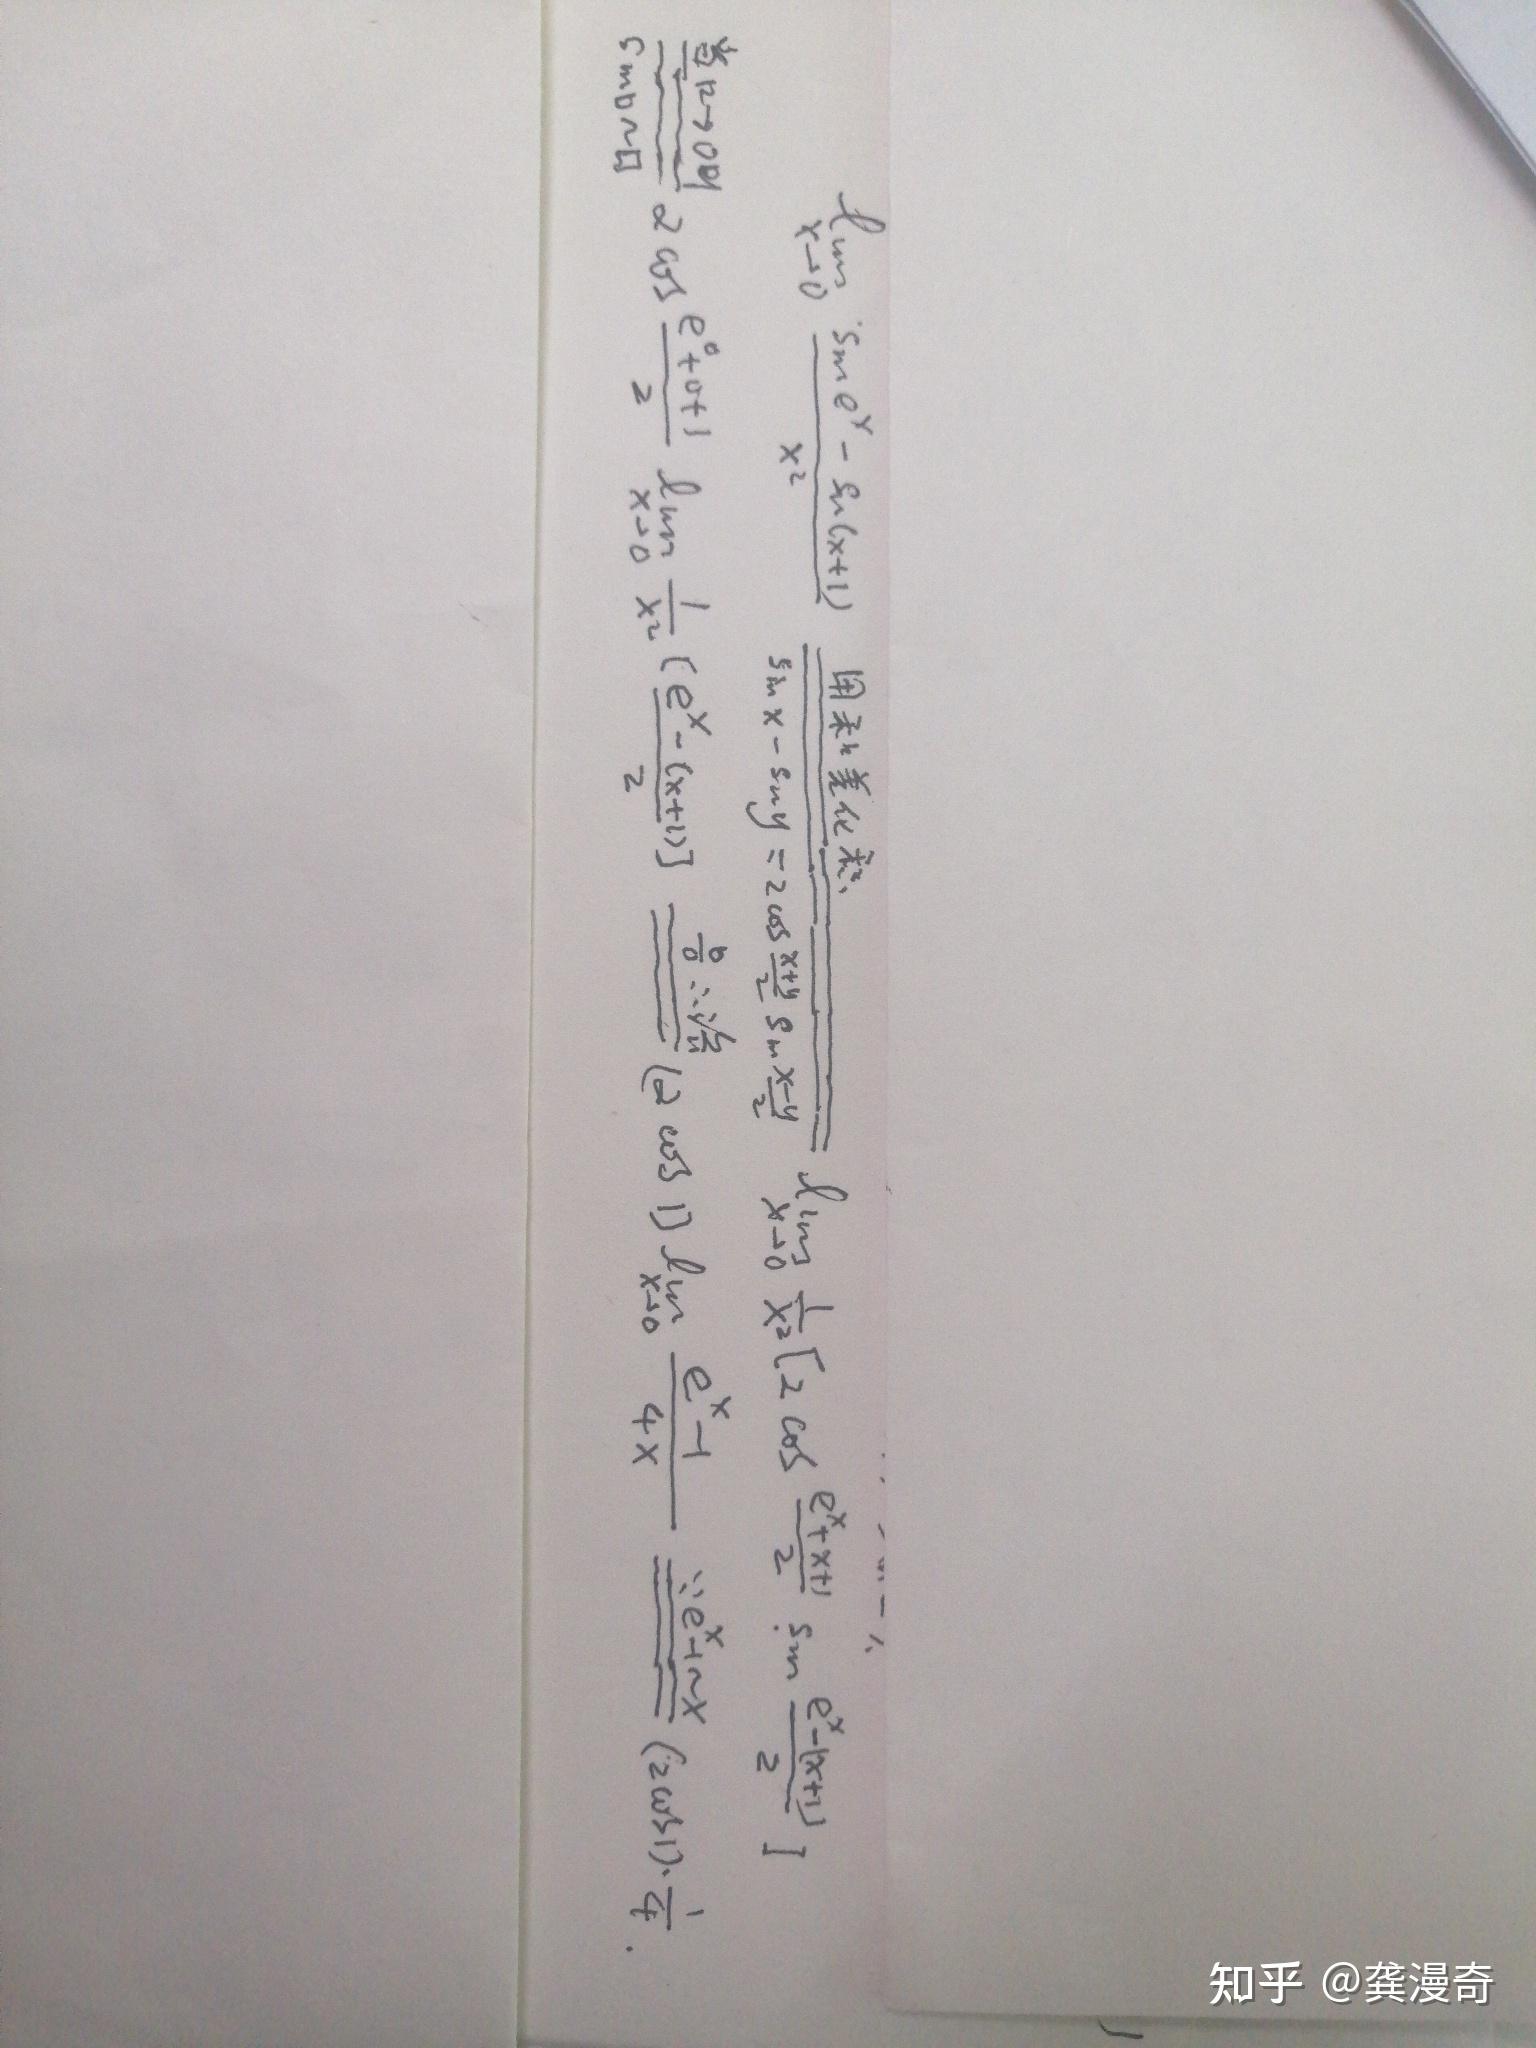 lim x→0 (sin e^x - sin(x+1))/x² 用和差化积, sinx - siny = 2cos (x+y)/2 sin (x-y)/2 lim x→0 1/x² [2 cos (e^x+x+1)/2 sin (e^x-(x+1))/2]
当□→0时 sin□~□ 2 cos (e^0+0+1)/2 lim x→0 1/x² [(e^x-(x+1))/2] 0/0 ∴洛 (2 cos 1) lim x→0 (e^x-1)/4x ∵e^x-1~x (2cos1)·1/4.
知乎 @龚漫奇